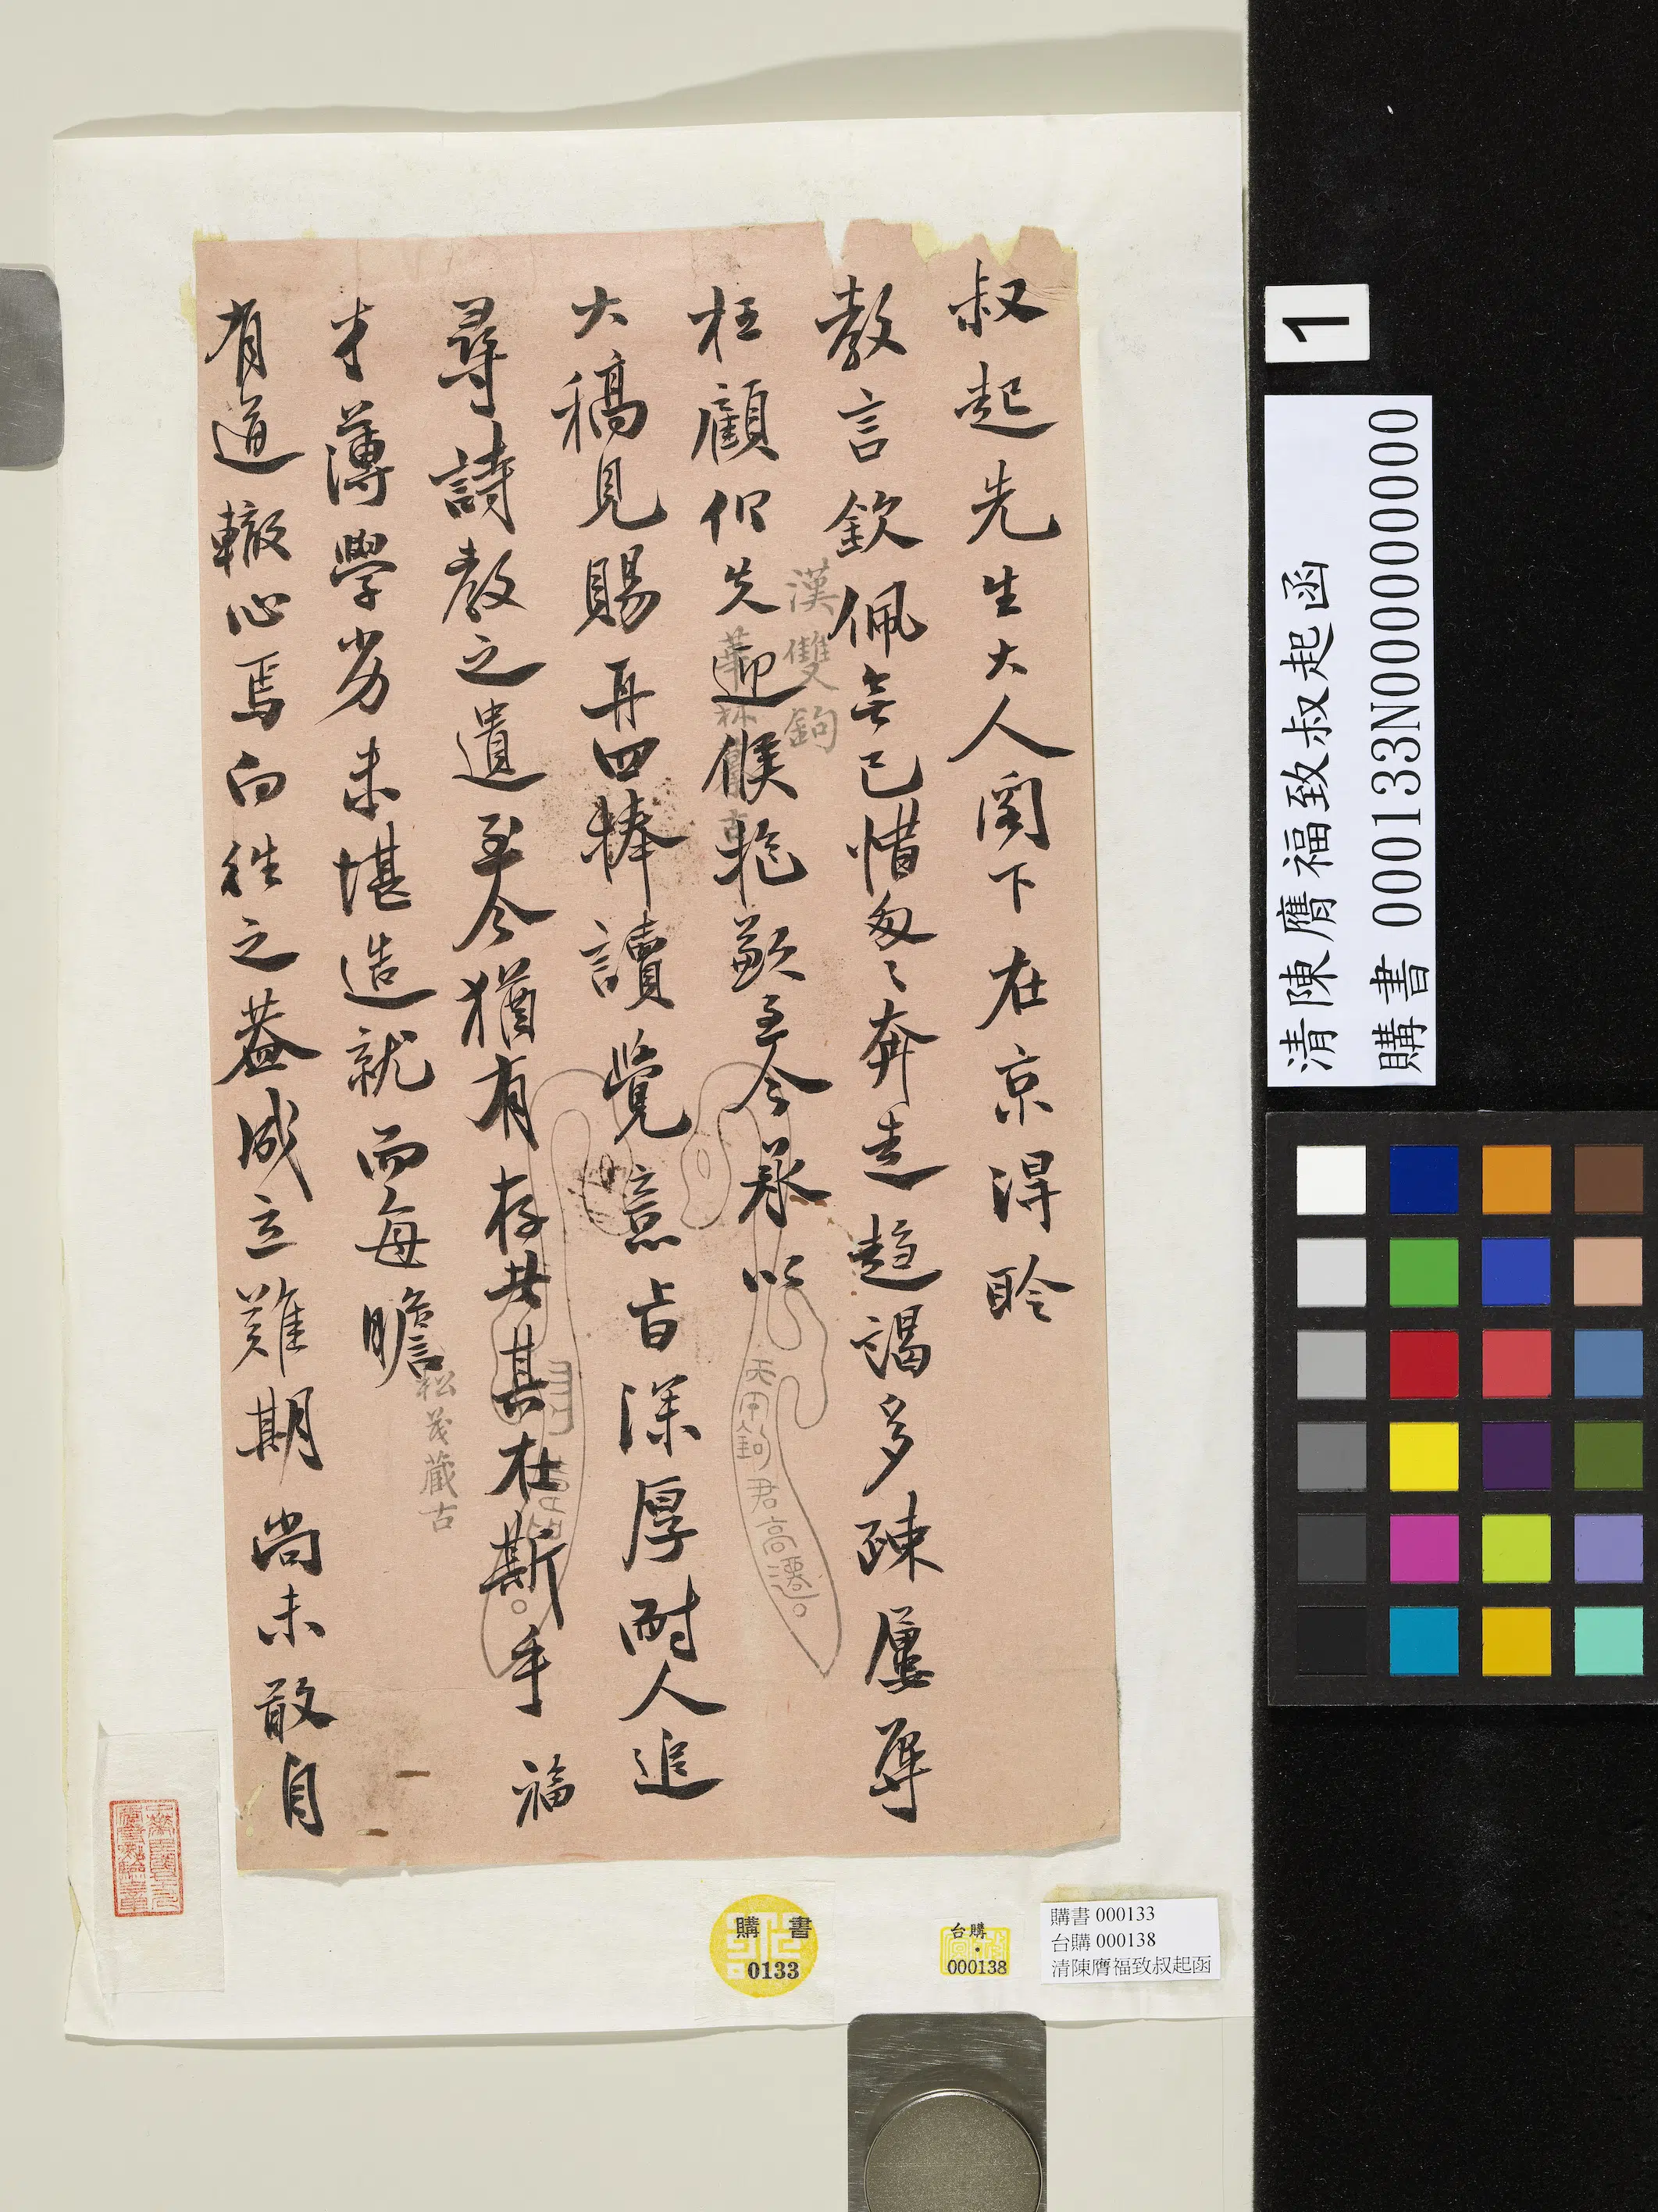 叔起先生大人閣下在京得聆
教言欽佩無已惜匆匆奔走趨謁多疎屢辱
枉顧仍失迎候抱歉至今承以
大稿見賜再四捧讀覺意旨深厚耐人追
尋詩教之遺至今猶有存者其在斯乎福
才薄學劣未堪造就而每瞻
有道轍心焉向往之蓋成立難期尚未敢自
漢雙鉤
松茂藏古
1
清陳膺福致叔起函
購書 000133N000000000
購書
0133
台購
000138
購書 000133
台購 000138
清陳膺福致叔起函